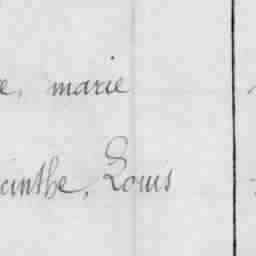 e, marie
cinthe, Louis